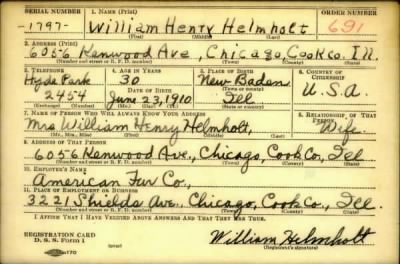 SERIAL NUMBER 1. NAME (Print) ORDER NUMBER
-1797- William Henry Helmholt 691
(First) (Middle) (Last)
2. ADDRESS (Print)
6056 Kenwood Ave., Chicago, Cook Co. Ill.
(Number and street or R. F. D. number) (Town) (County) (State)
3. TELEPHONE 4. AGE IN YEARS 5. PLACE OF BIRTH 6. COUNTRY OF CITIZENSHIP
Hyde Park 30 New Baden
DATE OF BIRTH (Town or county) U.S.A.
2454 June 23, 1910 Ill
(Exchange) (Number) (Mo.) (Day) (Yr.) (State or country)
7. NAME OF PERSON WHO WILL ALWAYS KNOW YOUR ADDRESS 8. RELATIONSHIP OF THAT PERSON
Mrs William Henry Helmholt, Wife
(Mr., Mrs., Miss) (First) (Middle) (Last)
9. ADDRESS OF THAT PERSON
6056 Kenwood Ave., Chicago, Cook Co, Ill
(Number and street or R. F. D. number) (Town) (County) (State)
10. EMPLOYER'S NAME
American Fur Co.,
11. PLACE OF EMPLOYMENT OR BUSINESS
3221 Shields Ave., Chicago, Cook Co., Ill.
(Number and street or R. F. D. number) (Town) (County) (State)
I AFFIRM THAT I HAVE VERIFIED ABOVE ANSWERS AND THAT THEY ARE TRUE.
REGISTRATION CARD
D. S. S. Form 1 William Helmholt
(Registrant's signature)